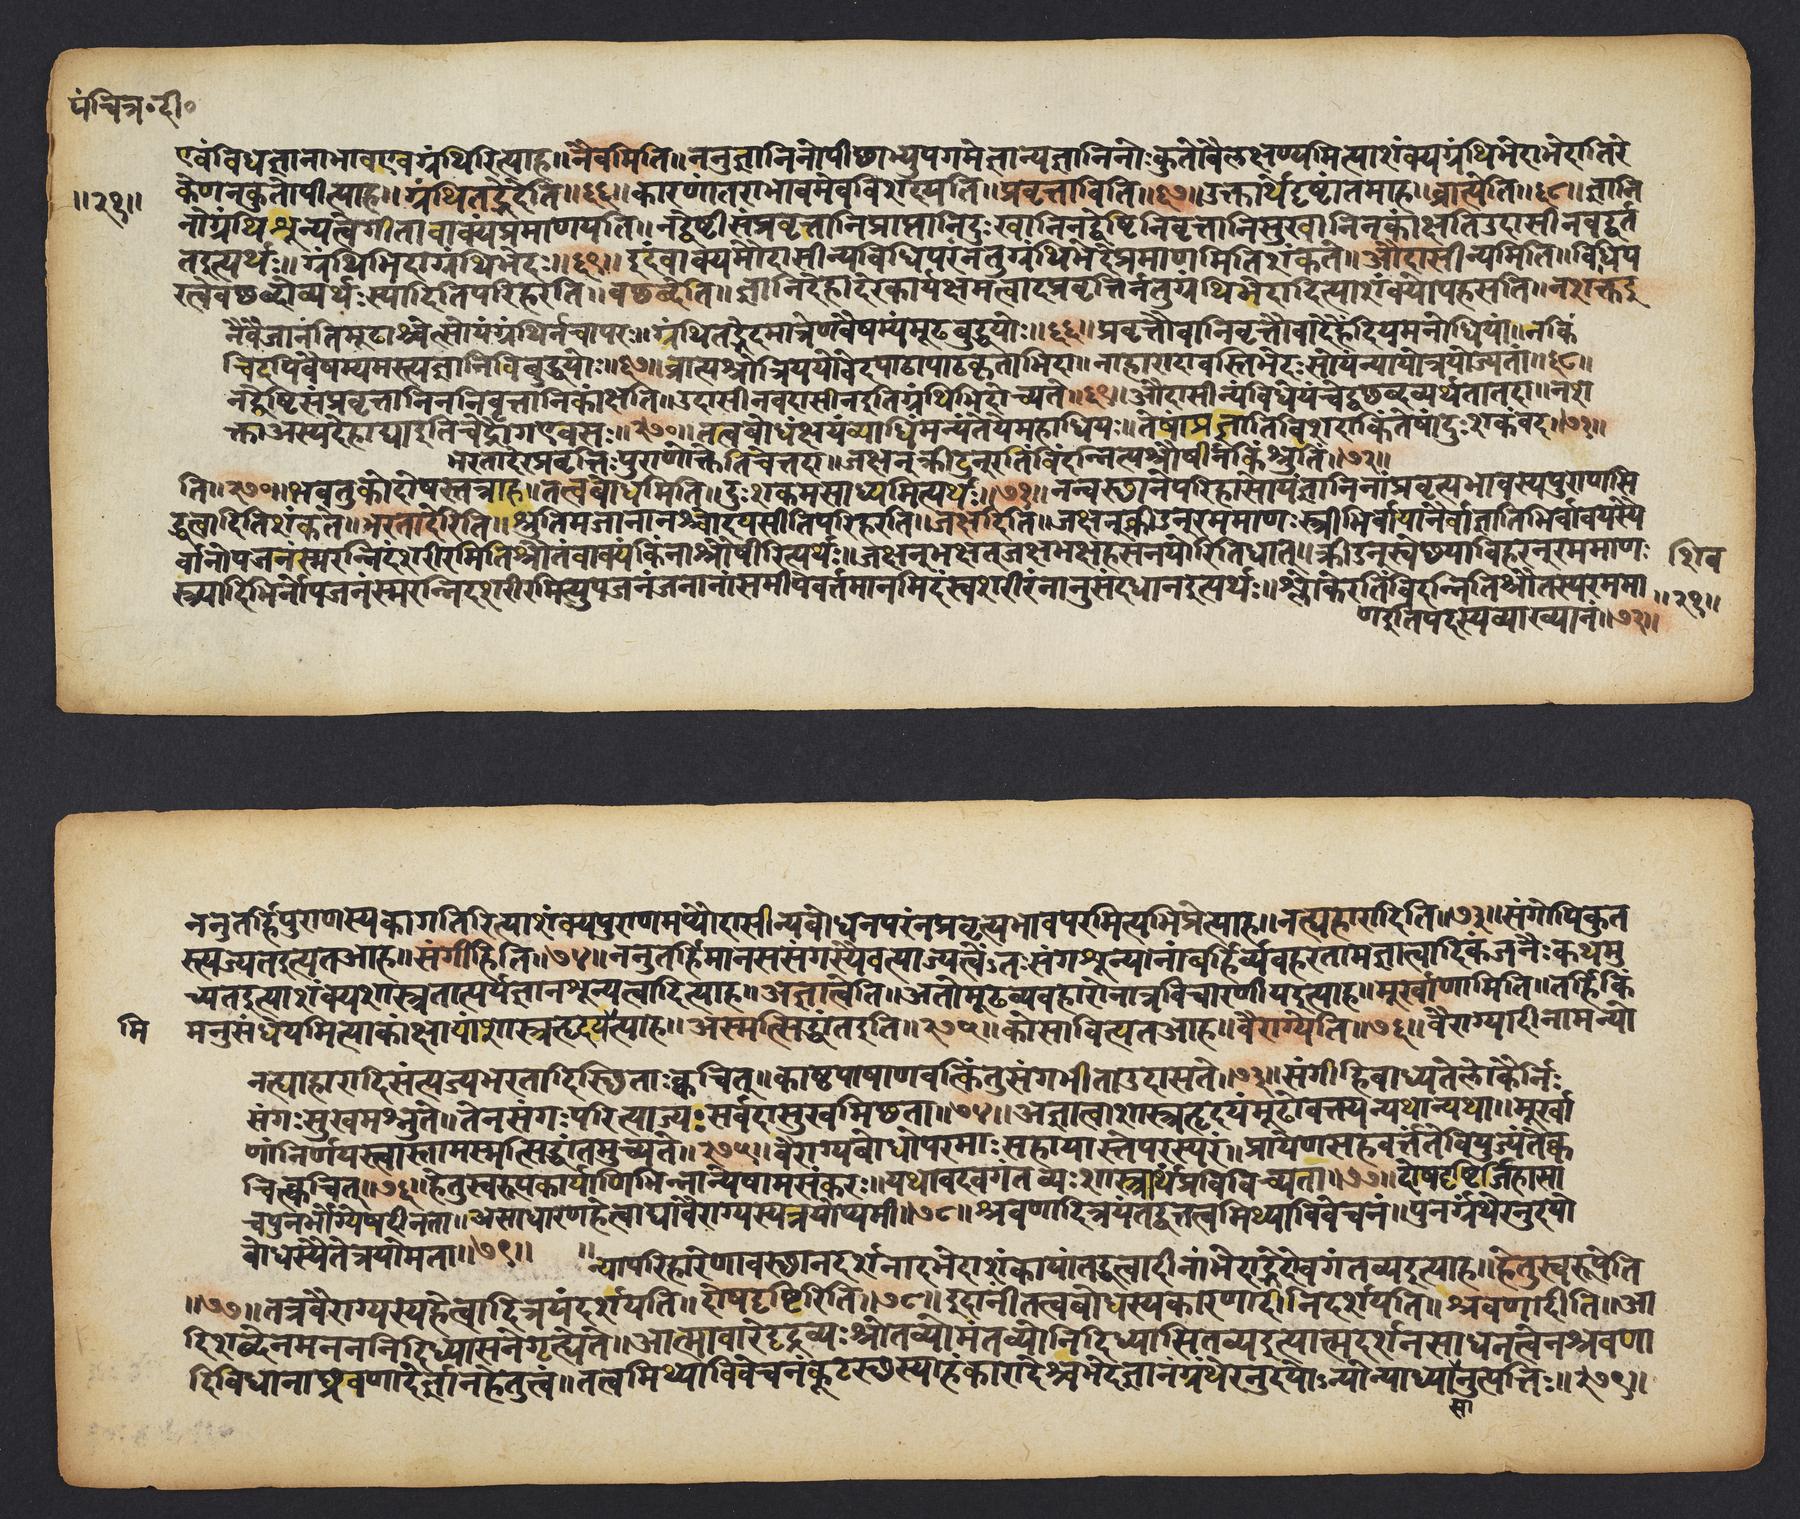 पंचित्र॰दी॰
एवंविधज्ञानाभावाएवग्रंथिरित्याह॥नैवमिति॥ननुज्ञानिनोपीछाभ्युपगमेज्ञान्यज्ञानिनोःकुतोवैलक्षण्यमित्याशंक्यग्रंथिभेदाभेदातिरे
॥२१॥
केणनकुतोपीत्याह॥ग्रंथितद्भेदेति॥६६॥कारणांतराभावमेवविशदयति॥प्रवृत्ताविति॥६७॥उक्तार्थेदृष्टांतमाह॥व्रात्येति॥६८॥ज्ञानि
नोग्रंथिशून्यत्वेगीतावाक्यंप्रमाणयति॥नद्वेष्टीसंप्रवृत्तानिप्राप्तानिदुःखानिनद्वेष्टिनिवृत्तानिसुखानिनकांक्षतिउदासीनवद्वर्त
तइत्यर्थः॥ग्रंथिभिदाग्रंथिभेदः॥६९॥इदंवाक्यमौदासीन्यविधिपरंनतुग्रंथिभेदेप्रमाणमितिशंकते॥औदासीन्यमिति॥विधिप
रत्वेवछब्दोव्यर्थःस्यादितिपरिहरति॥वछब्देति॥ज्ञानिदेहादेरकार्यक्षमत्वादप्रवृत्तिर्नतुग्रंथिभेदादित्याशंक्योपहसति॥नशक्ताइ
नैवंजानंतिमूढाश्चेत्सोयंग्रंथिर्नचापरः॥ग्रंथितद्भेदमात्रेणवैषम्यंमूढबुद्धयोः॥६६॥प्रवृत्तौवानिवृत्तौवादेहेंद्रियमनोधियां॥नकिं
चिदपिवैषम्यमस्त्यज्ञानिविबुद्धयोः॥६७॥व्रात्यश्रोत्रिययोर्वेदपाठापाठकृताभिदा॥नाहारादावस्तिभेदःसोयंन्यायोत्रयोज्यतां॥६८॥
नद्वेष्टिसंप्रवृत्तानिननिवृत्तानिकांक्षति॥उदासीनवदासीनइतिग्रंथिभिदोच्यते॥६९॥औदासीन्यंविधेयंचेद्वछब्दव्यर्थतातदा॥नश
क्ताअस्यदेहाद्याइतिचेद्रोगएवसः॥२७०॥तत्वबोधंक्षयंव्याधिंमन्यंतेयेमहाधियः॥तेषांप्रज्ञातिविशदाकिंतेषांदुःशकंवद॥७१॥
भरतादेरप्रवृत्तिःपुराणोक्तेतिचेत्तदा॥जक्षन्क्रीडन्रतिंविंदन्नित्यश्रौषीर्नकिंश्रुतिं॥७२॥
ति॥२७०॥भवतुकोदोषस्तत्राह॥तत्वबोधमिति॥दुःशकमसाध्यमित्यर्थः॥७१॥नन्वस्थानेपरिहासोयंज्ञानिनांप्रवृत्यभावस्यपुराणसि
द्धत्वादितिशंकते॥भरतादेरिति॥श्रुतिमजानानश्चोदयसीतिपरिहरति॥जक्षदिति॥जक्षन्क्रीडन्रममाणःस्त्रीभिर्वायानैर्वाज्ञातिभिर्वावयस्यै
र्वानोपजनंस्मरन्निदंशरीरमितिश्रौतंवाक्यंकिंनाश्रौषीरित्यर्थः॥जक्षन्भक्षतजक्षभक्षहसनयोरितिधातोः॥क्रीडन्स्वेछयाविहरन्रममाणः
शिव
स्त्र्यादिभिर्नोपजनंस्मरन्निदंशरीरमित्युपजनंजनानांसमीपेवर्त्तमानमिदंस्वशरीरंनानुसंदधानइत्यर्थः॥श्लोकेरतिंविंदन्नितिश्रौतस्यरममा
॥२१॥
णइतिपदस्यव्याख्यानं॥७२॥
ननुतर्हिपुराणस्यकागतिरित्याशंक्यपुराणमप्यौदासीन्यबोधनपरंनप्रवृत्यभावपरमित्यभिप्रेत्याह॥नत्यहारादिति॥७३॥संगोपिकुत
स्त्यज्यतइत्यतआह॥संगीहिति॥७४॥ननुतर्हिमानससंगस्यैवत्याज्यत्वेऽतःसंगशून्यानांबहिर्व्यवहरतामज्ञात्वादिकंजनैःकथमु
च्यतइत्याशंक्यशास्त्रतात्पर्यज्ञानशून्यत्वादित्याह॥अज्ञात्वेति॥अतोमूढव्यवहारोनात्रविचारणीयइत्याह॥मूर्खाणामिति॥तर्हिकिं
मि
मनुसंधेयमित्याकांक्षायांशास्त्रहृदयेत्याह॥अस्मत्सिद्धांतइति॥२७५॥कोसावित्यतआह॥वैराग्येति॥७६॥वैराग्यादीनामन्यो
नत्याहारादिसंत्यज्यभरतादिस्थिताःक्वचित्॥काष्ठपाषाणवत्किंतुसंगभीताउदासते॥७३॥संगीहिबाध्यतेलोकैर्निः
संगःसुखमश्नुते॥तेनसंगःपरित्याज्यःसर्वदासुखमिछता॥७४॥अज्ञात्वाशास्त्रहृदयंमूढोवक्त्यन्यथान्यथा॥मूर्खा
णांनिर्णयस्त्वास्तामस्मत्सिद्धांतमुच्यते॥२७५॥वैराग्यबोधोपरमाःसहायास्तेपरस्परं॥प्रायेणसहवर्त्तंतेवियुज्यंतेक्व
चित्क्वचित्॥७६॥हेतुस्वरूपकार्याणिभिन्नान्येषामसंकरः॥यथावदवगंतव्यःशास्त्रार्थंप्रविविच्यता॥७७॥दोषदृष्टिर्जिहासा
चपुनर्भोगेष्वदीनता॥असाधारणहेत्वाद्यावैराग्यस्यत्रयोप्यमी॥७८॥श्रवणादित्रयंतद्वत्तत्वमिथ्याविवेचनं॥पुनर्ग्रंथेरनुदयो
बोधस्यैतेत्रयोमताः॥७९॥ ॥न्यापरिहारेणावस्थानदर्शनादभेदाशंकायांतद्धेत्वादीनांभेदाद्भेदोवगंतव्यइत्याह॥हेतुस्वरूपेति
॥७७॥तत्रवैराग्यस्यहेत्वादित्रयंदर्शयति॥दोषदृष्टिरिति॥७८॥इदानींतत्वबोधस्यकारणादीनिदर्शयति॥श्रवणादीति॥आ
दिशब्देनमनननिदिध्यासनेगृह्येते॥आत्मावारेदृष्टव्यःश्रोतव्योमंतव्योनिदिध्यासितव्यइत्यात्मदर्शनसाधनत्वेनश्रवणा
दिविधानाछ्रवणादेर्ज्ञानहेतुत्वं॥तत्वमिथ्याविवेचनंकूटस्थस्याहंकारादेश्चभेदज्ञानंग्रंथेरनुदयोऽन्योन्याध्यानुत्पत्तिः॥२७९॥
सा